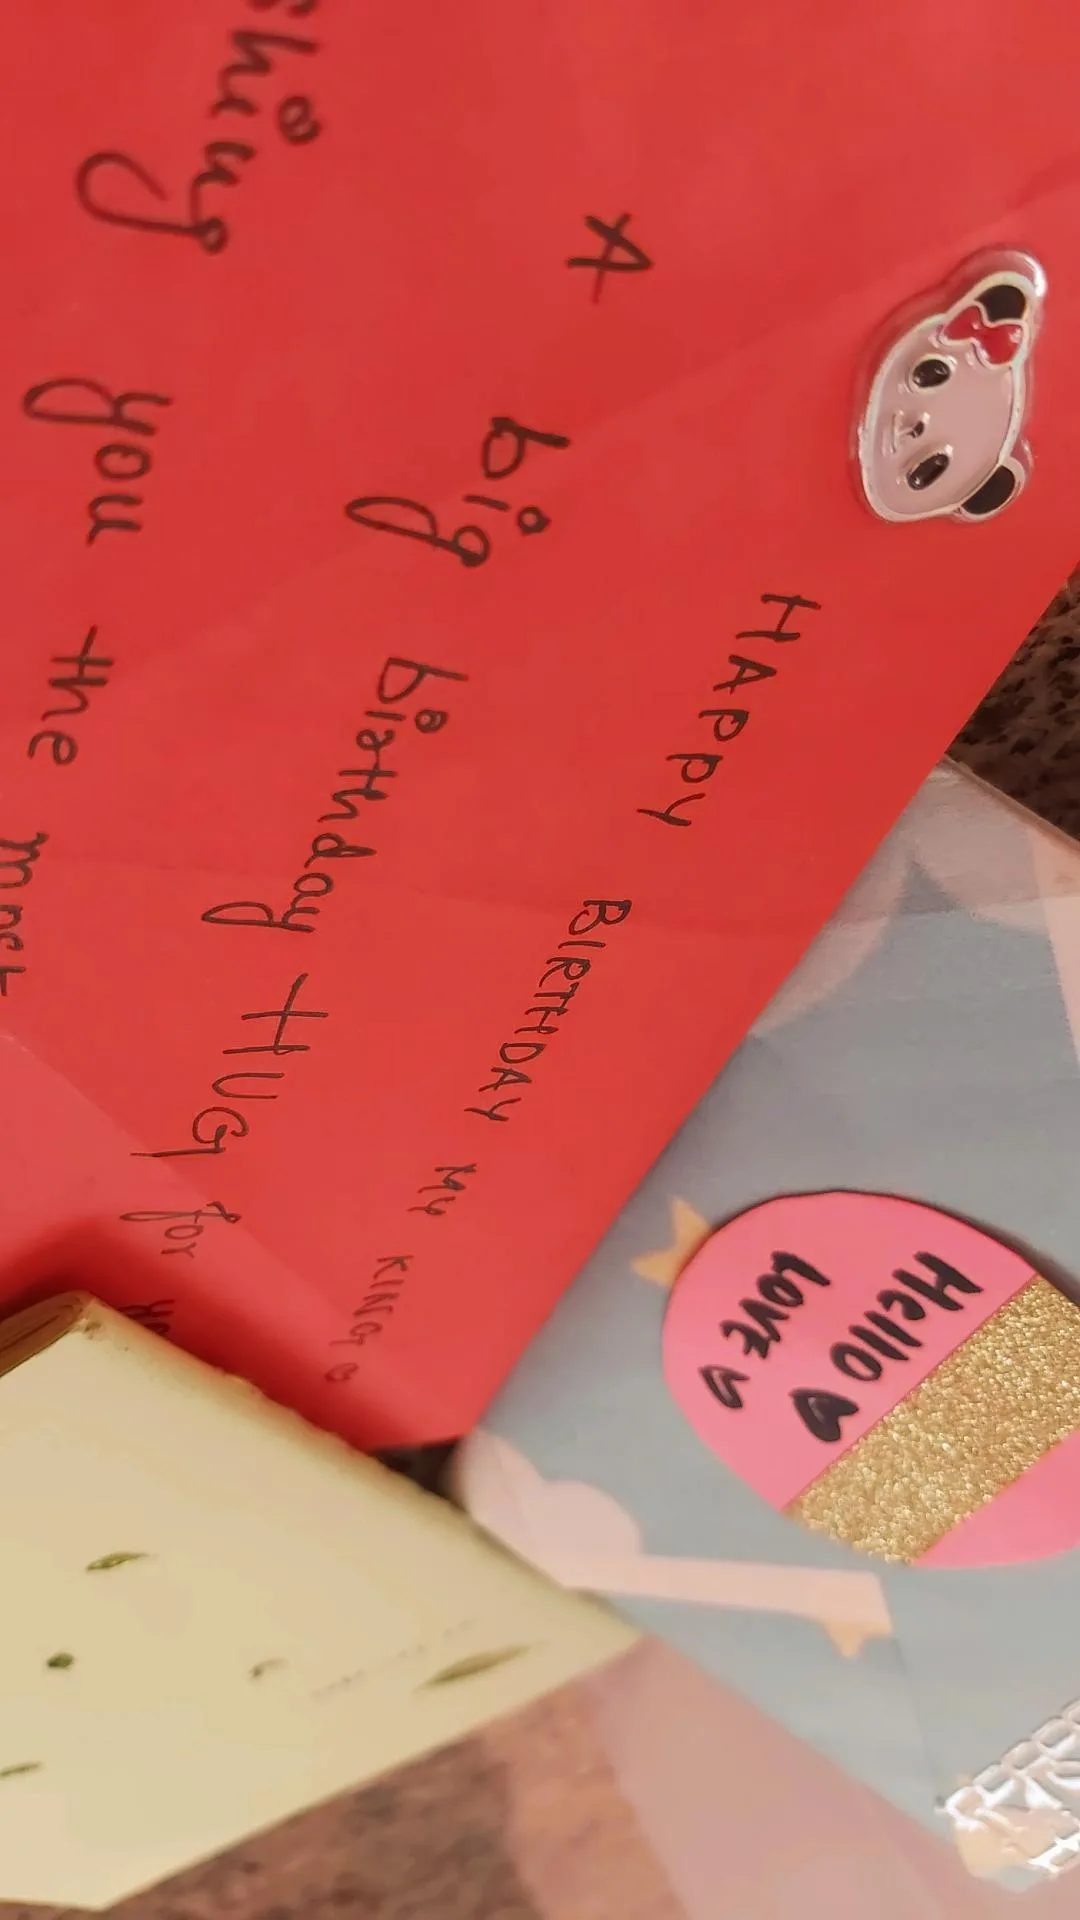 HAPPY BIRTHDAY MY KING
A big birthday HUG for
shing you the most
Hello
LOVE